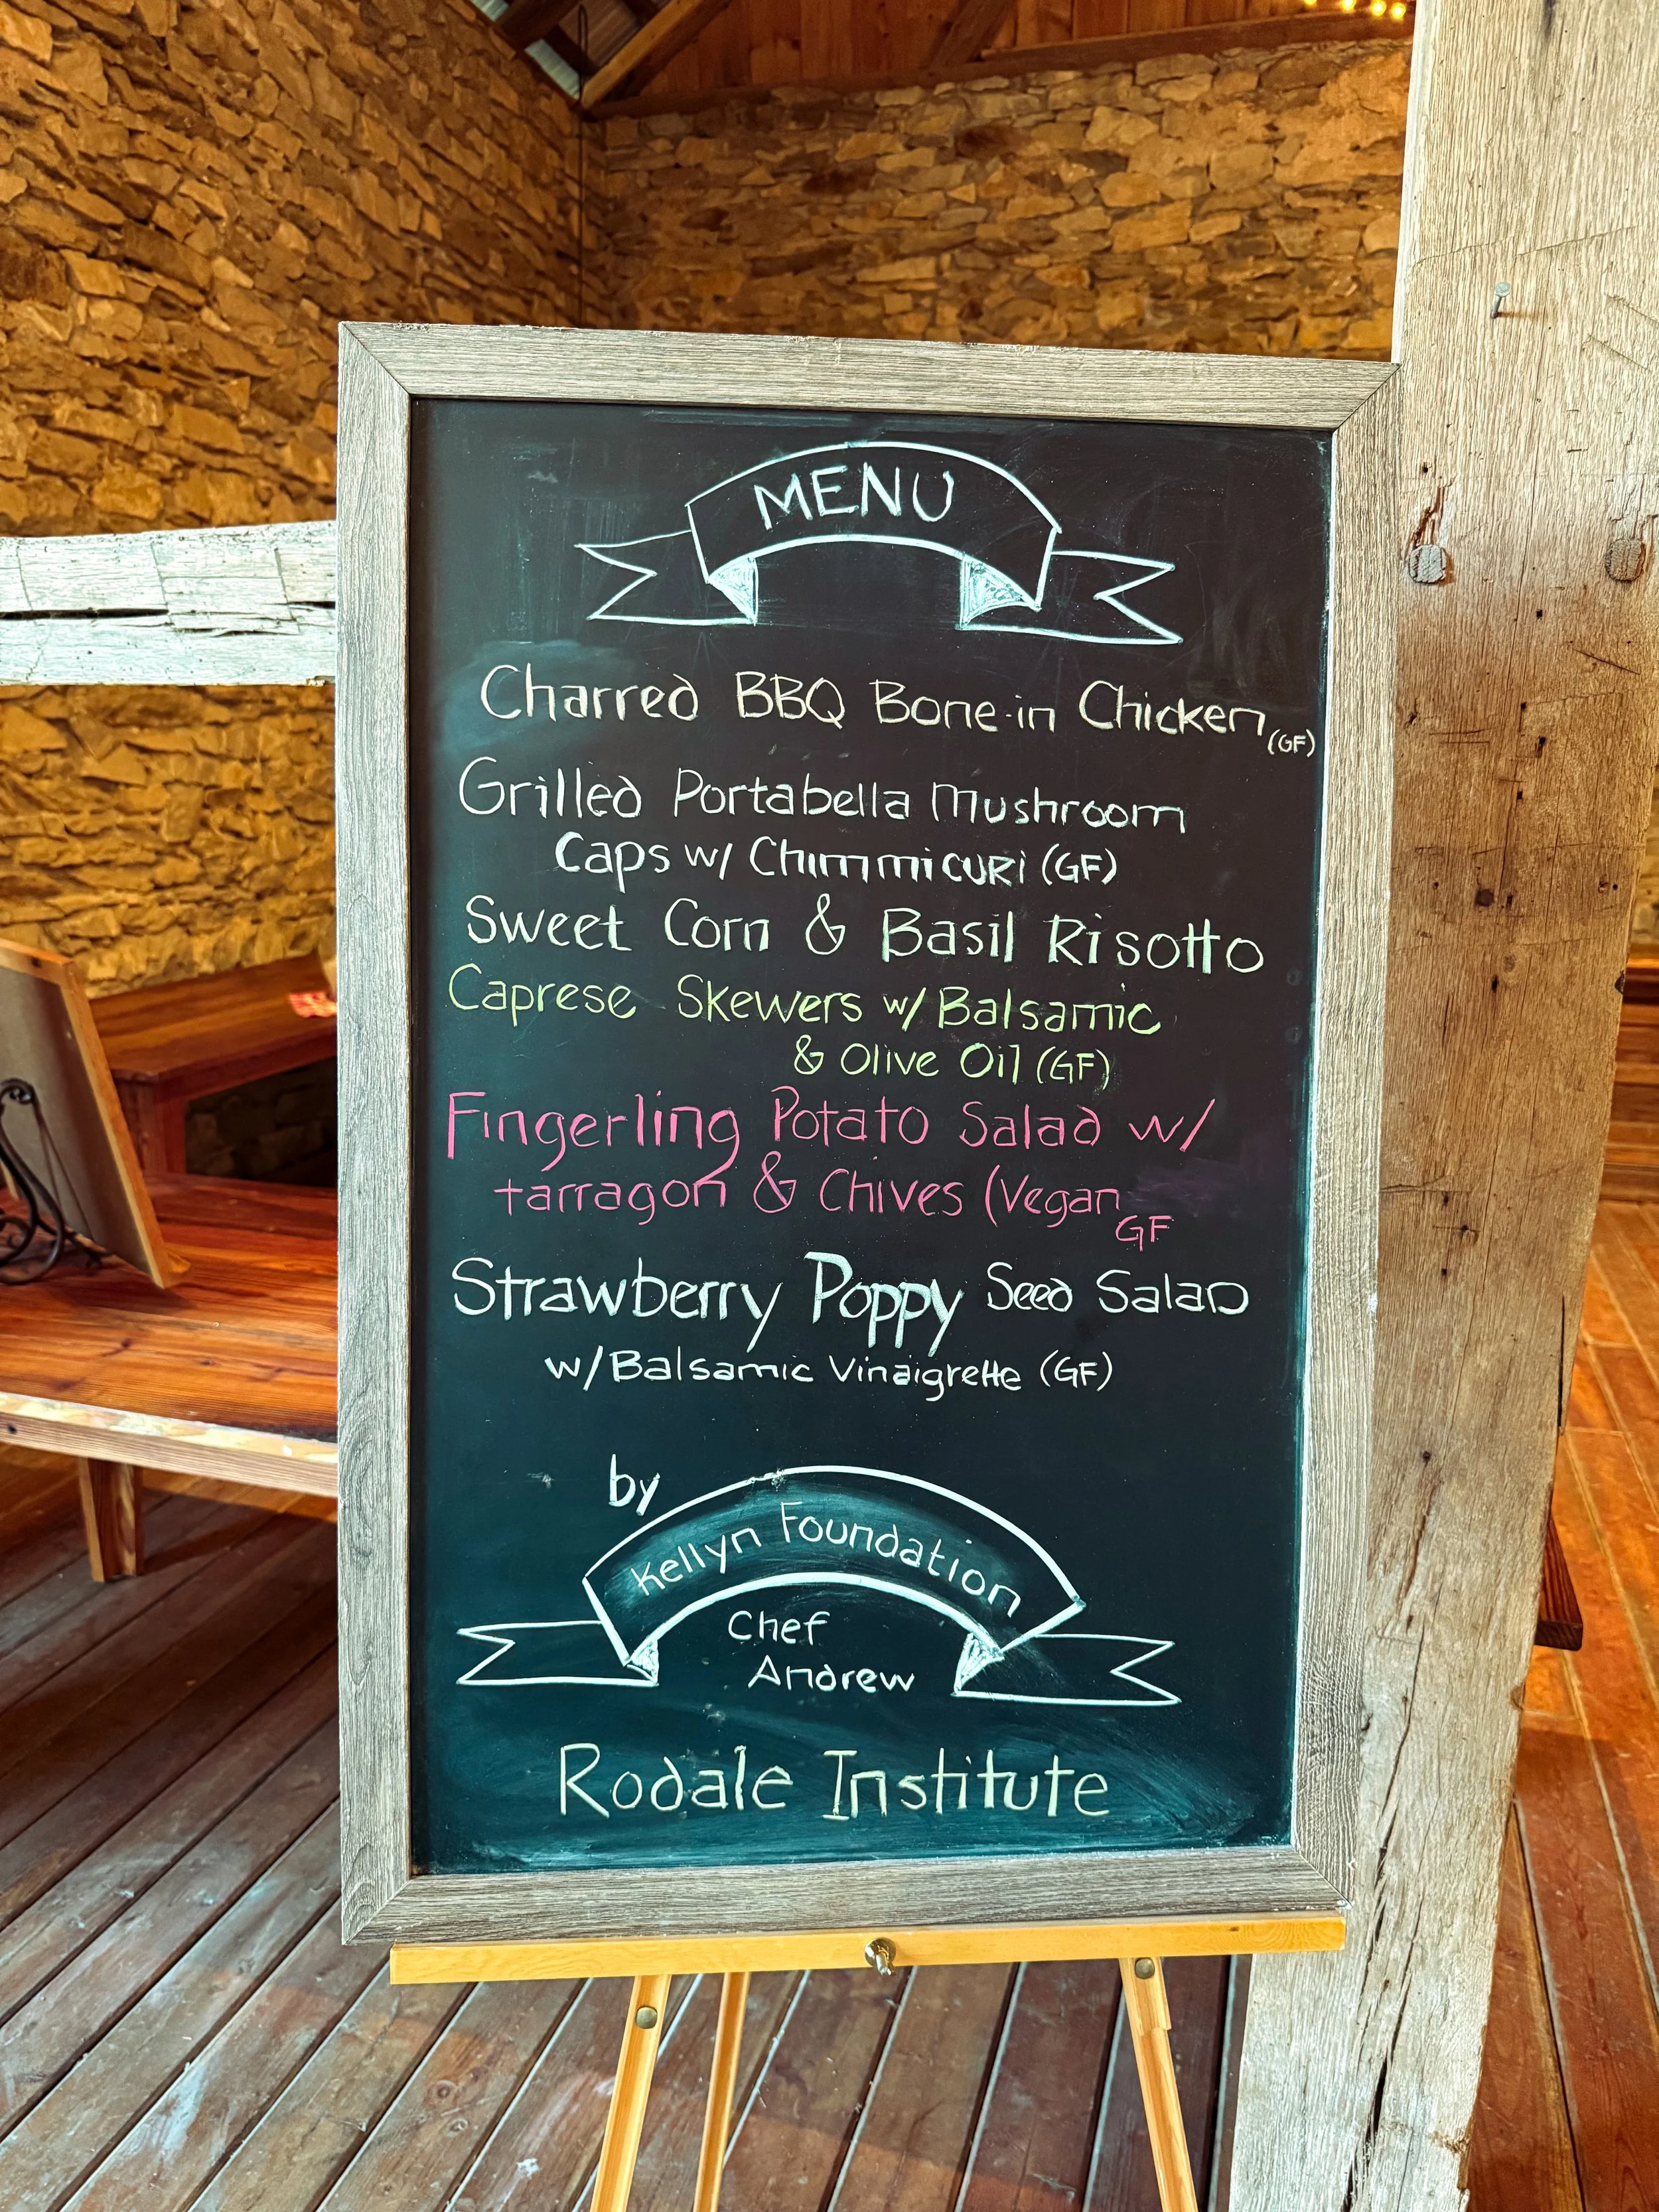 MENU
Charred BBQ Bone-in Chicken (GF)
Grilled Portabella Mushroom
Caps w/ Chimmicuri (GF)
Sweet Corn & Basil Risotto
Caprese Skewers w/ Balsamic
& Olive Oil (GF)
Fingerling Potato Salad w/
tarragon & Chives (Vegan
GF
Strawberry Poppy Seed Salad
w/ Balsamic Vinaigrette (GF)
by
Kellyn Foundation
Chef
Andrew
Rodale Institute